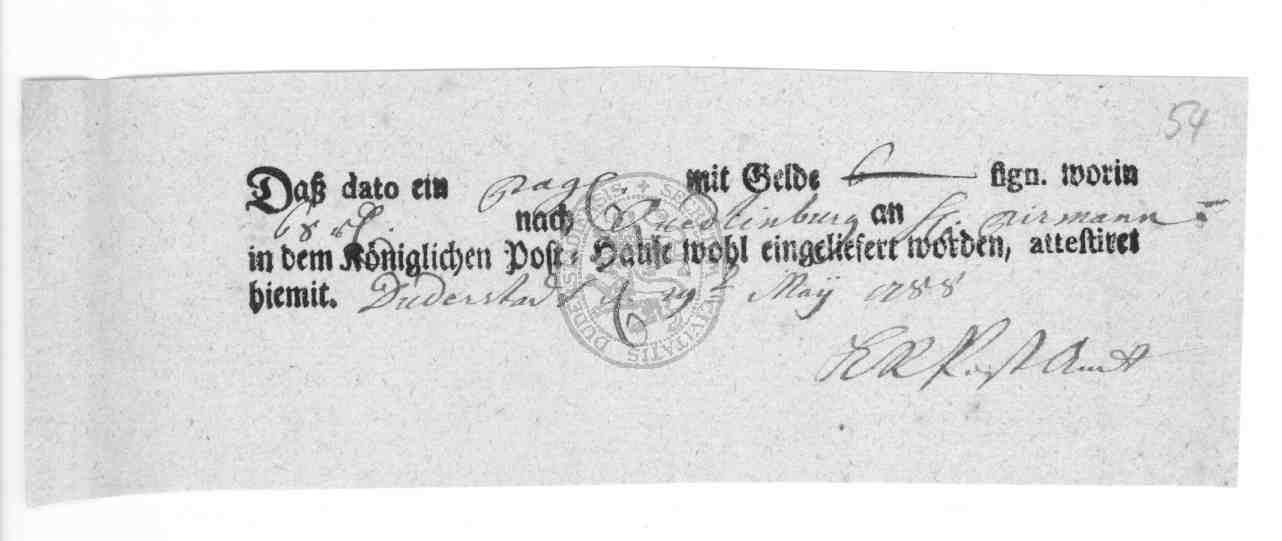 54
Daß dato ein mit Gelde sign. worin
68 nach Quedlinburg an
in dem Königlichen Post-Hause wohl eingeliefert worden, attestiret
hiemit. Duderstadt d 19 Maÿ 1788
Post Amt